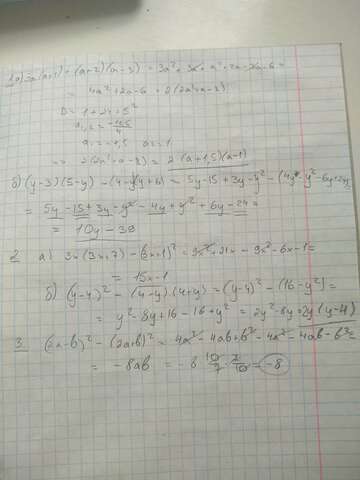 1 а) 3a(a+1) + (a+2)(a-3) = 3a² + 3a + a² + 2a - 3a - 6 =
= 4a² + 2a - 6 = 2(2a² + a - 3)
D = 1 + 24 = 5²
a = -1,5 a = 1
=> 2(2a² + a - 3) = 2(a+1,5)(a-1)
б) (y-3)(5-y) - (4-y)(y+6) = 5y - 15 + 3y - y² -
= 5y - 15 + 3y - y² - 4y + y² + 6y - 24 =
= 10y - 39
2 а) 3x(3x+7) - (3x+1)² = 9x² + 21x - 9x² - 6x - 1 =
= 15x - 1
б) (y-4)² - (4-y)(4+y) = (y-4)² - (16-y²) =
= y² - 8y + 16 - 16 + y² = 2y² - 8y = 2y(y-4)
3. (2a-b)² - (2a+b)² = 4a² - 4ab + b² - 4a² - 4ab - b² =
= -8ab = -8 · 10/7 · 7/10 = -8